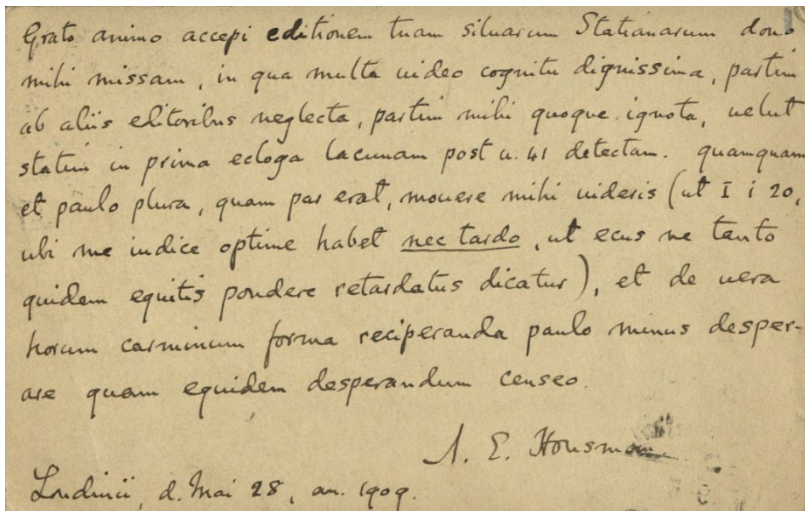 Grato animo accepi editionem tuam siluarum Statianarum dono
mihi missam, in qua multa uideo cognitu dignissima, partim
ab aliis editoribus neglecta, partim mihi quoque ignota, uelut
statim in prima ecloga lacunam post u. 41 detectam. quamquam
et paulo plura, quam par erat, mouere mihi uideris (ut I i 20,
ubi me iudice optime habet nec tardo, ut ecus ne tanto
quidem equitis pondere retardatus dicatur), et de uera
horum carminum forma reciperanda paulo minus desper-
are quam equidem desperandum censeo.
A. E. Housman
Londinii, d. Mai 28, an. 1909.